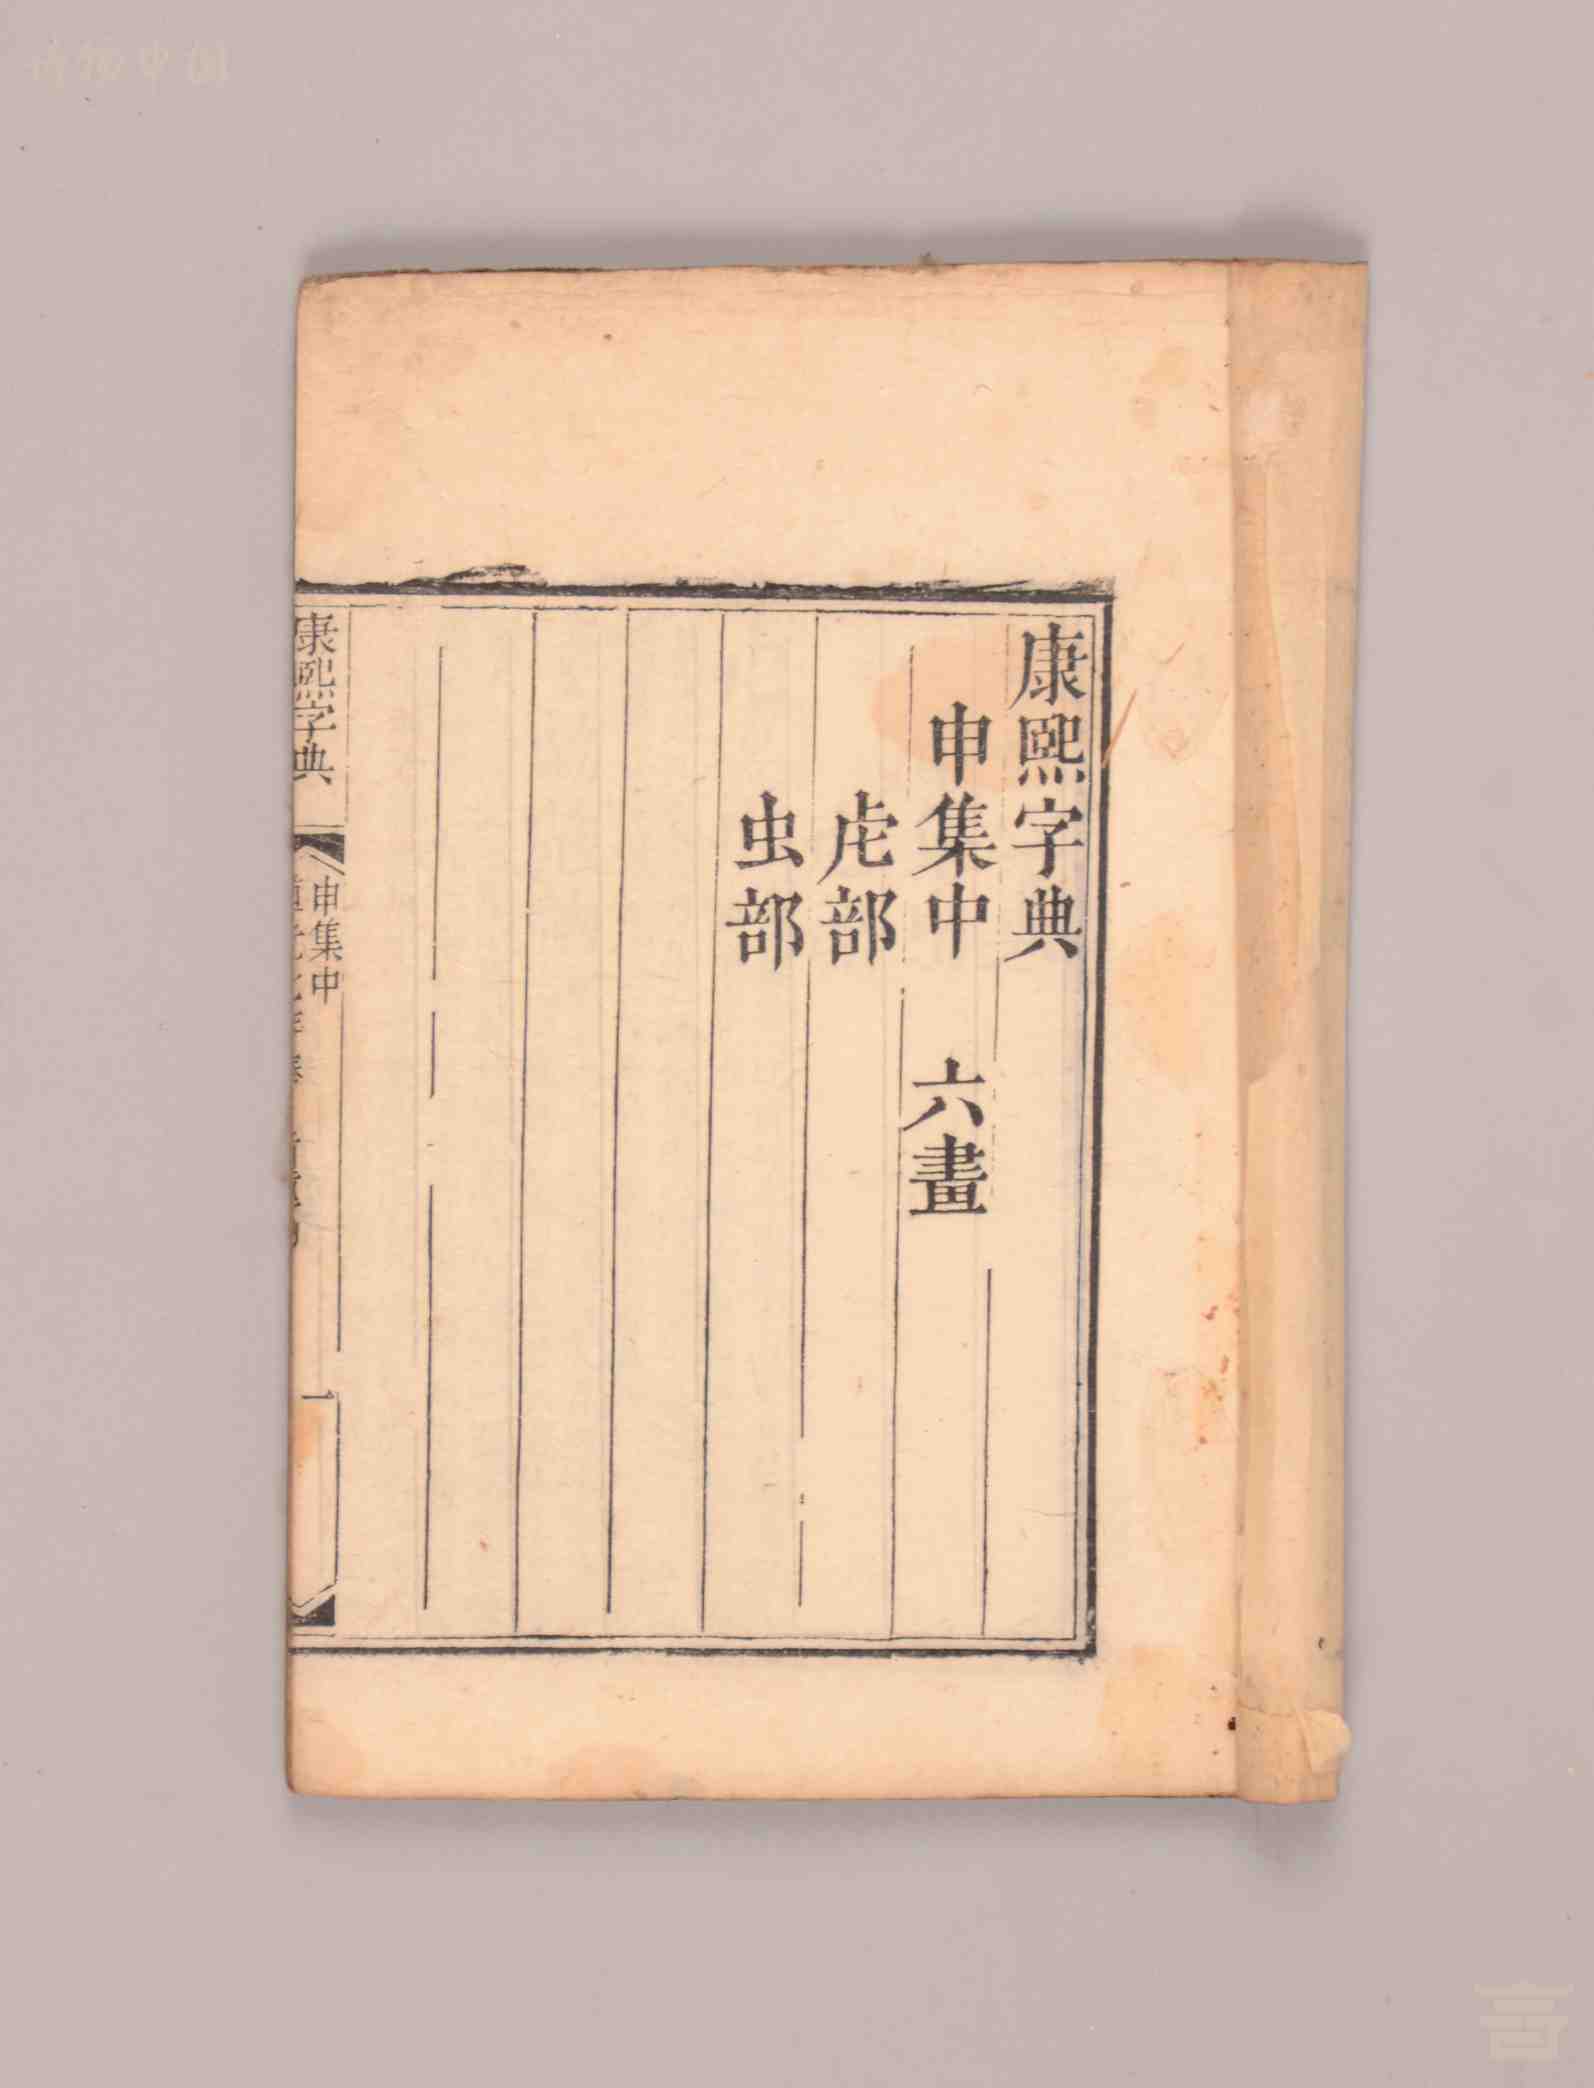 康熙字典
申集中　六畫
虍部
虫部
康熙字典
申集中
一